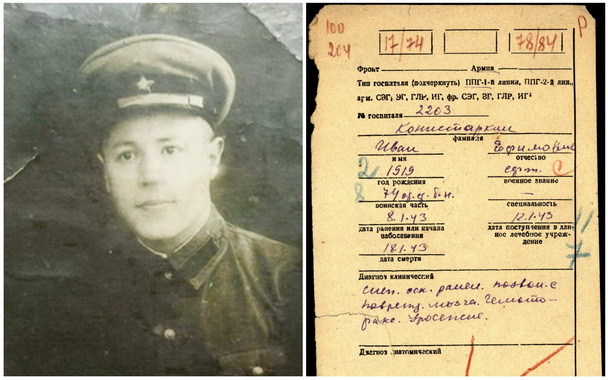 100
204
17/74 78/84
Р
Фронт Армия
Тип госпиталя (подчеркнуть) ППГ-1-й линии, ППГ-2-й лин.,
арм. СЭГ, ЭГ, ГЛР, ИГ, фр. СЭГ, ЭГ, ГЛР, ИГ
№ госпиталя 2203
Конистаркин
фамилия
Иван Ефимович
имя отчество
1919 серж.
год рождения военное звание
воинская часть специальность
8.1.43 12.1.43
дата ранения или начала заболевания дата поступления в данное лечебное учреждение
18.1.43
дата смерти
Диагноз клинический
Слеп. оск. ранен. позвон. с
поврежд. мозга. Гемото-
ракс.
Диагноз анатомический